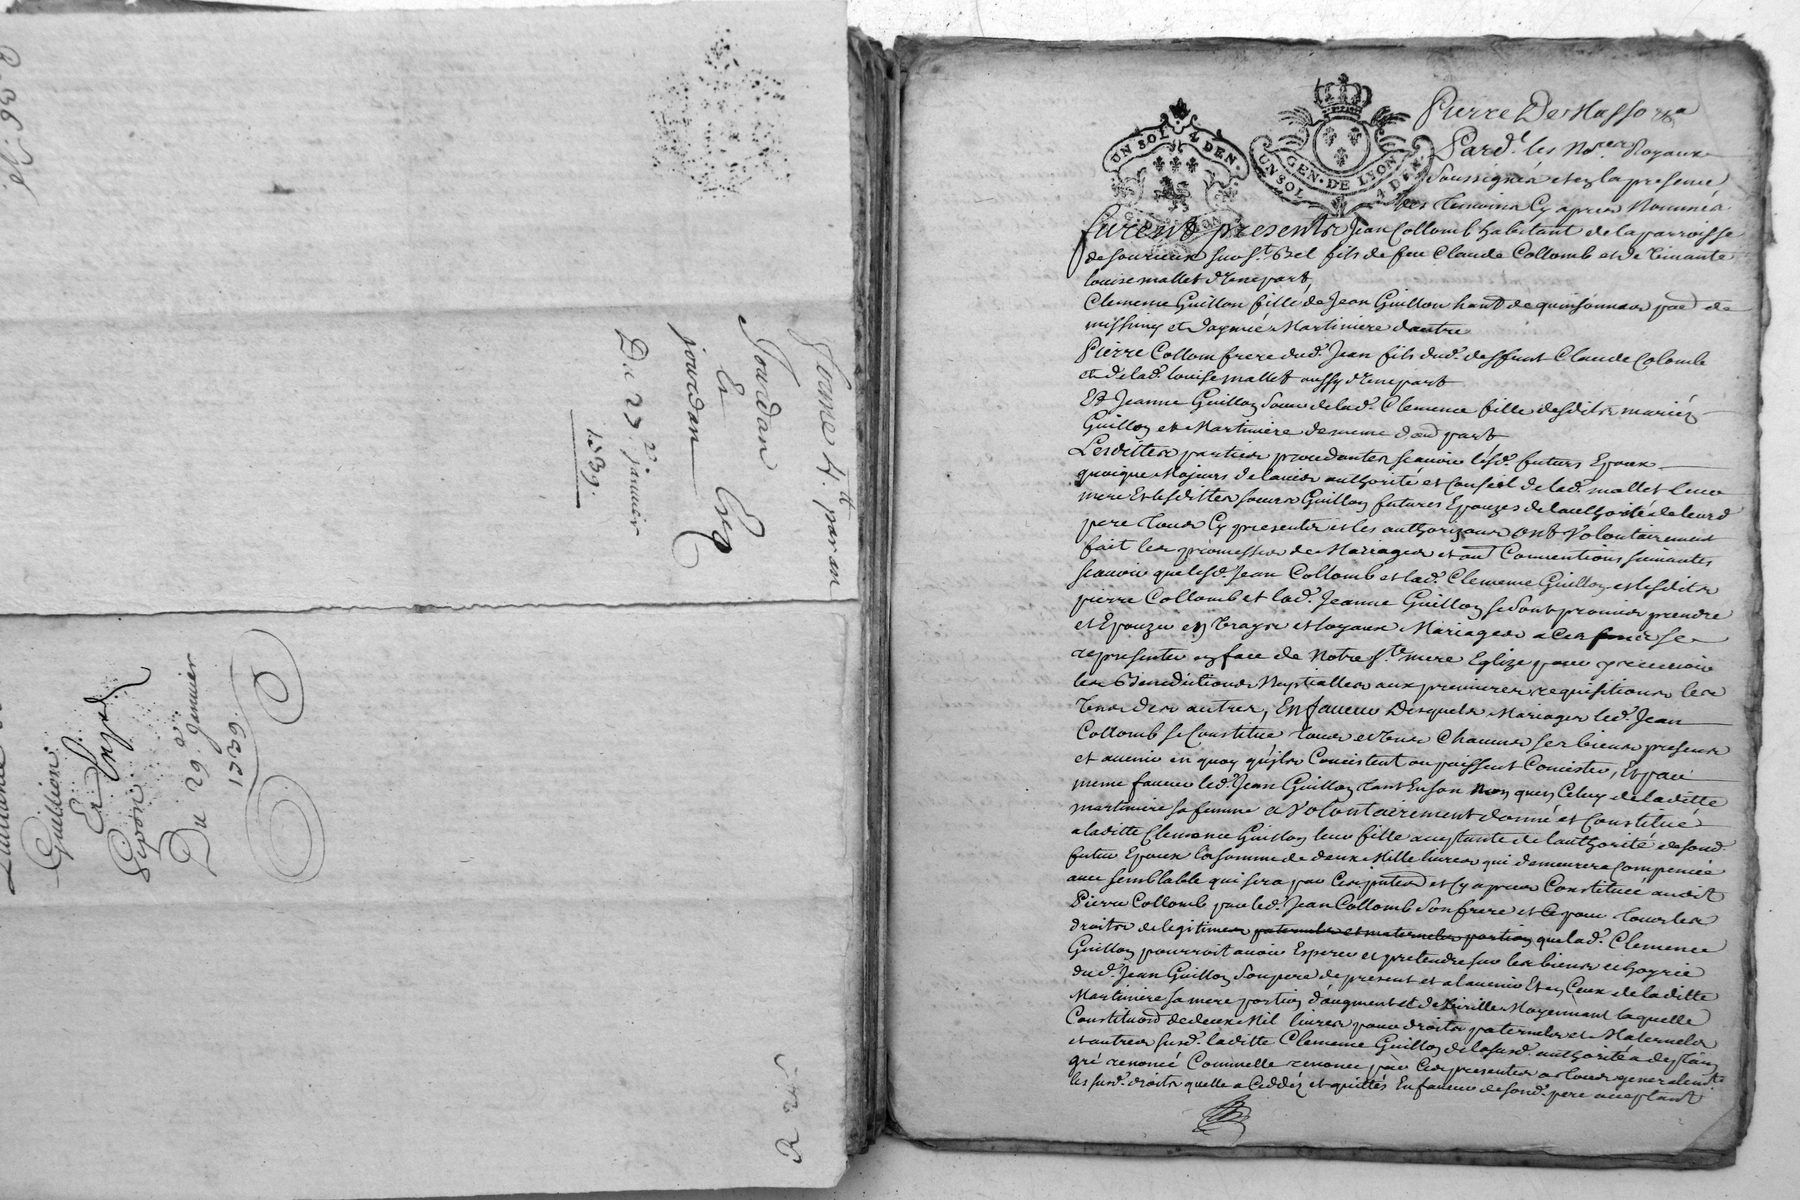 Jourdan
Et
jourdan
Du 23 janvier
1739.
Guillion
Et
Du 29 Janvier
1739
R 25
UN SOL 4 DEN.
GEN. DE LYON
UN SOL 4 DEN.
Pard.t les No.res Royaux
Soussignés et en la presence
des temoins Cy apres Nommés
furent presents Jean Collomb habitant de la parroisse
de Sourieux sur S.t Bel fils de feu Claude Collomb et de vivante
louise mallet d'une part,
Clemence Guillon fille de Jean Guillon hant de quinsonnas par de
et Martiniere d'autre
Pierre Collomb frere dud. Jean fils dud. deffunt Claude Colomb
et de lad. louise mallet aussy d'une part
Et Jeanne Guillon Soeur de lad. Clemence fille desdits mariés
Guillon et Martiniere de meme d'au. part
Lesdittes parties procedantes sçavoir lesd. futurs Epoux
quoique Majeurs de lavis authorité et Conseil de lad. mallet leur
mere Et lesdittes soeurs Guillon futures Epouzes de lauthorité de leurd
pere tous Cy presents et les authorizans ont Volontairement
fait les promesses de Mariages et Conventions suivantes
sçavoir que led. Jean Collomb et lad. Clemence Guillon et lesdits
pierre Collomb et lad. Jeanne Guillon se sont promis prendre
et Epouzer en vrays et loyaux Mariages a ces se
representer en face de Notre S.te mere Eglize pour y recevoir
les Benedictions Nuptialles aux premieres requisitions les
uns des autres, En faveur Desquels Mariages led. Jean
Collomb se Constitue tous et uns Chacuns ses biens presents
et avenir en quoy qu'ils Concistent ou puissent Concister, Et par
meme faveur led. Jean Guillon tant En son Nom quen Celuy de laditte
martiniere sa femme a Volontairement donné et Constitué
a laditte Clemence Guillon leur fille acceptante de lauthorité de sond.
futur Epoux la somme de deux Mille livres qui demeurera Compencée
avec semblable qui sera par Ces pntes et Cy apres Constituée audit
Pierre Collomb par led. Jean Collomb Son frere et Ce pour tous les
droits de legitimes paternels et maternels portion que lad. Clemence
Guillon pourroit avoir Esperer et pretendre sur les biens et hoyrie
du d. Jean Guillon Son pere de present et alavenir Et en Ceux de laditte
Martiniere sa mere portion d'augment et de Virille Moyennant laquelle
Constituon de deux Mil livres pour droits paternels et Maternels
et autres susd. laditte Clemence Guillon de la susd. authorité a de son
gré renoncé Comme elle renonce par Ces presentes a tous generalem.t
les susd. droits quelle a Ceddés et quittés En faveur de sond. pere acceptant